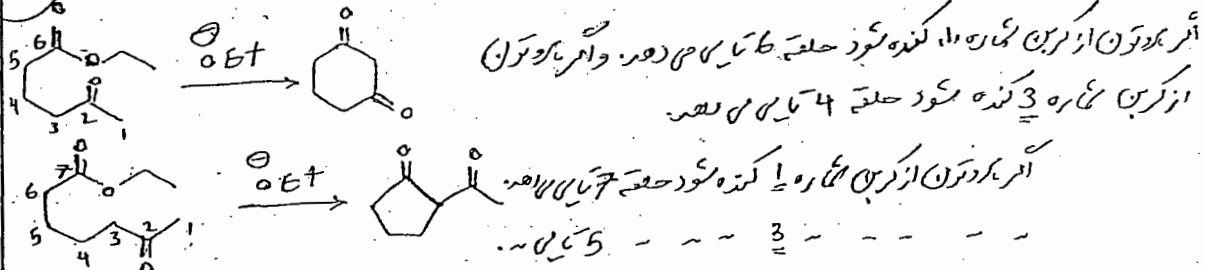 اگر پروتون از کربن شماره ۱ کنده شود حلقه 6 تایی می دهد. و اگر پروتون
از کربن شماره 3 کنده شود حلقه 4 تایی می دهد.
O
6
O
5
4
3
O
2
1
⊖
OEt
O
O
اگر پروتون از کربن شماره 1 کنده شود حلقه 7 تایی می دهد.
~ ~ ~ ~ ~ 3 ~ ~ ~ 5 تایی ~.
O
7
O
6
5
4
3
2
1
O
⊖
OEt
O
O